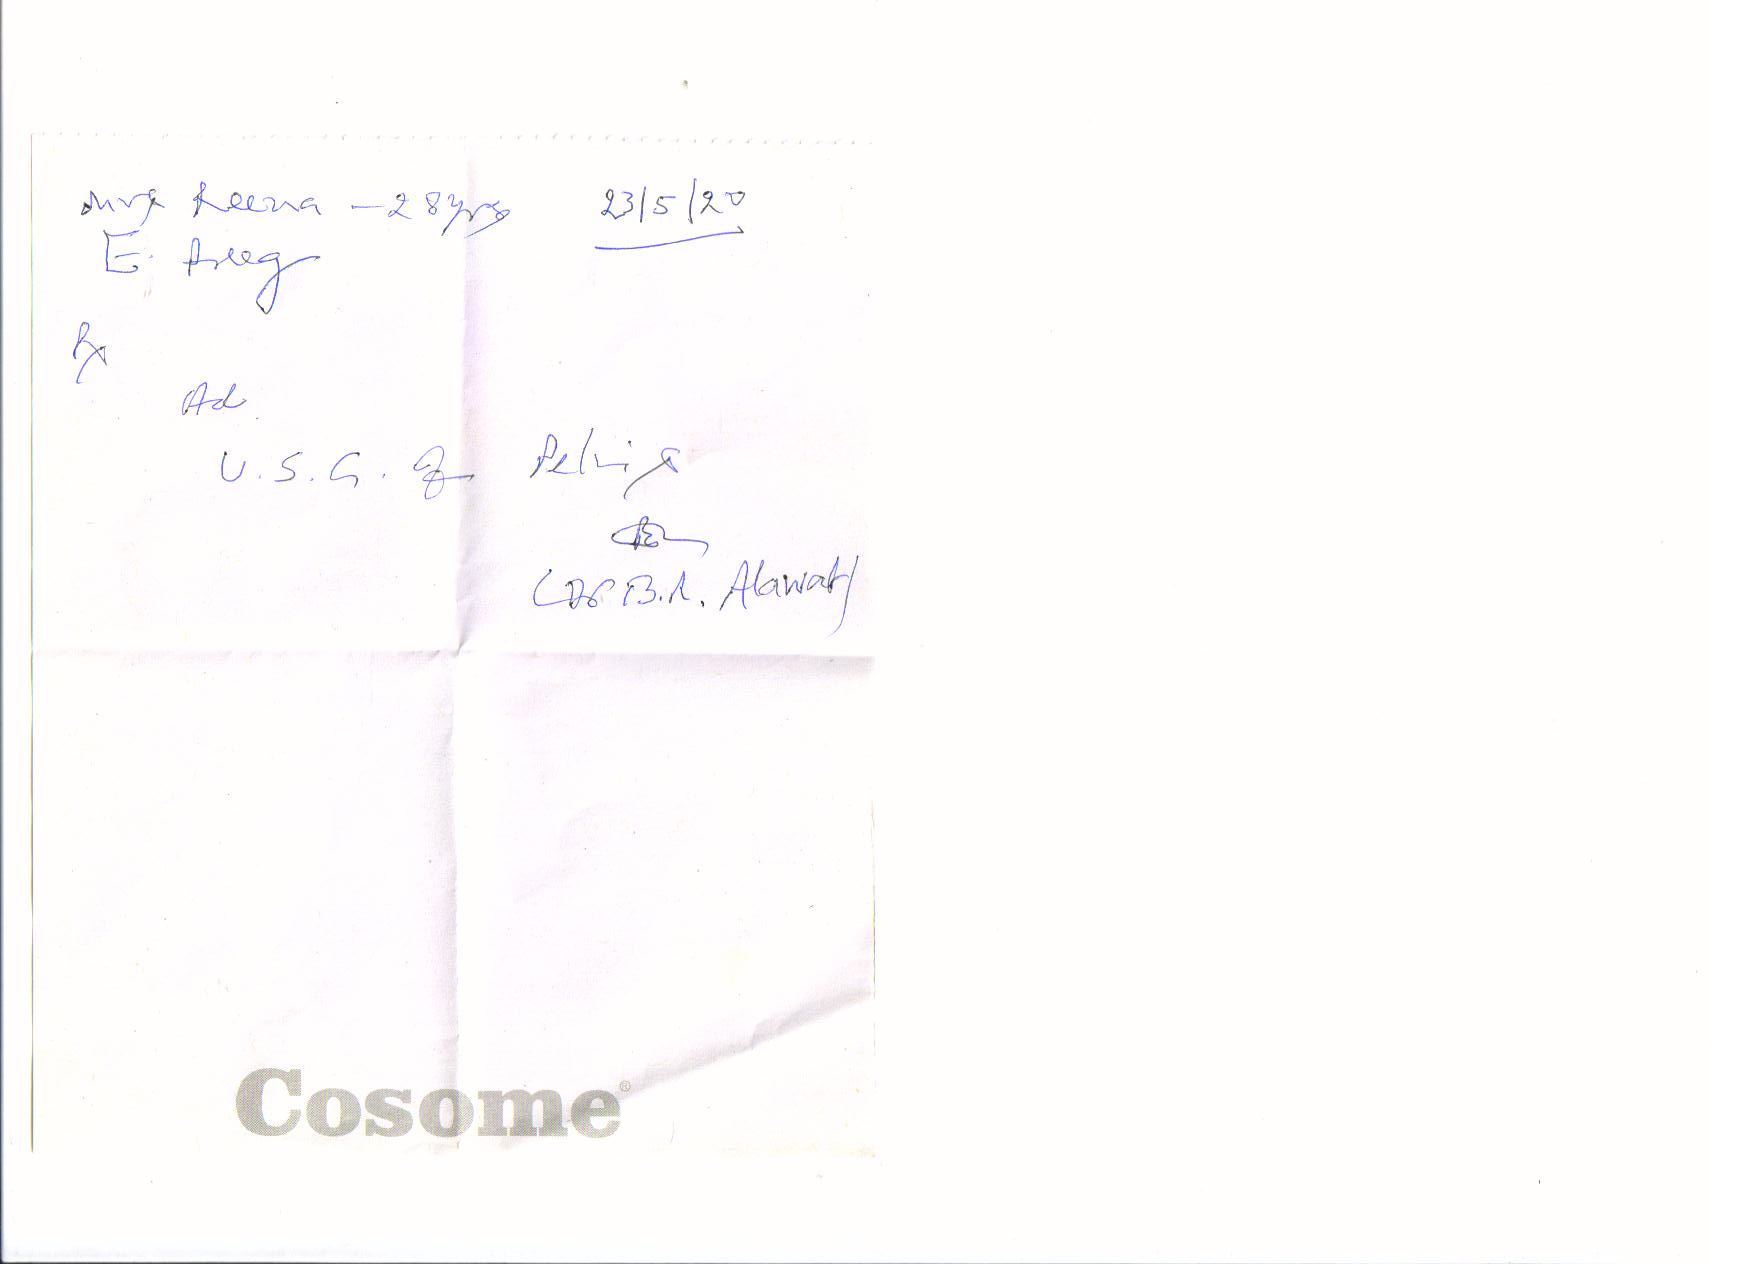 Mrs Reena - 28 yrs 23/5/20
E.
Rx
Ad.
U.S.G. of Pelvis
(Dr B.R. Alawat)
Cosome®